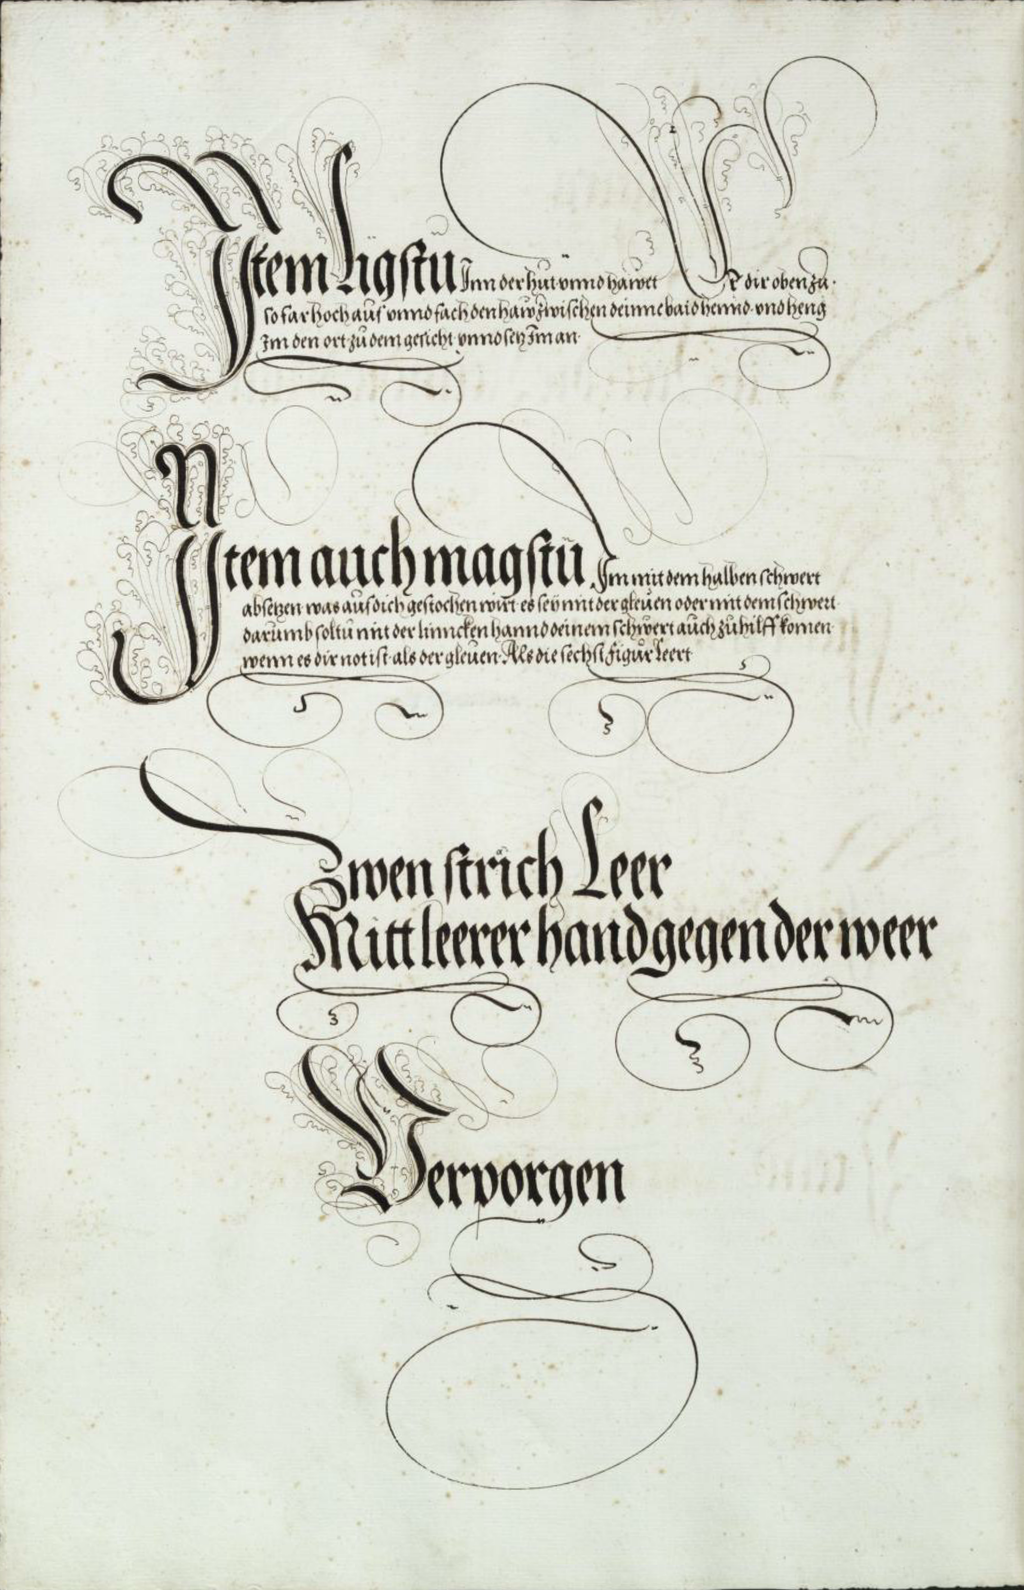 Item ligstu Inn der hut vnnd hawet Er dir oben zu·
so far hoch auf vnnd fach den haw zwischen deinne baid hennd· vnd heng
Im den ort zu dem gesicht· vnnd setz Im an·
Item auch magstu Im mit dem halben schwert
absetzen· was auf dich gestochen wirt· es seÿ mit der gleuen oder mit dem schwert·
darumb soltu mit der linncken hannd deinem schwert auch zu hilff komen
wenn es dir not ist· als der gleuen· Als die sechst figur Leert
Zwen strich Leer
Mitt leerer hand gegen der weer
Vervorgen